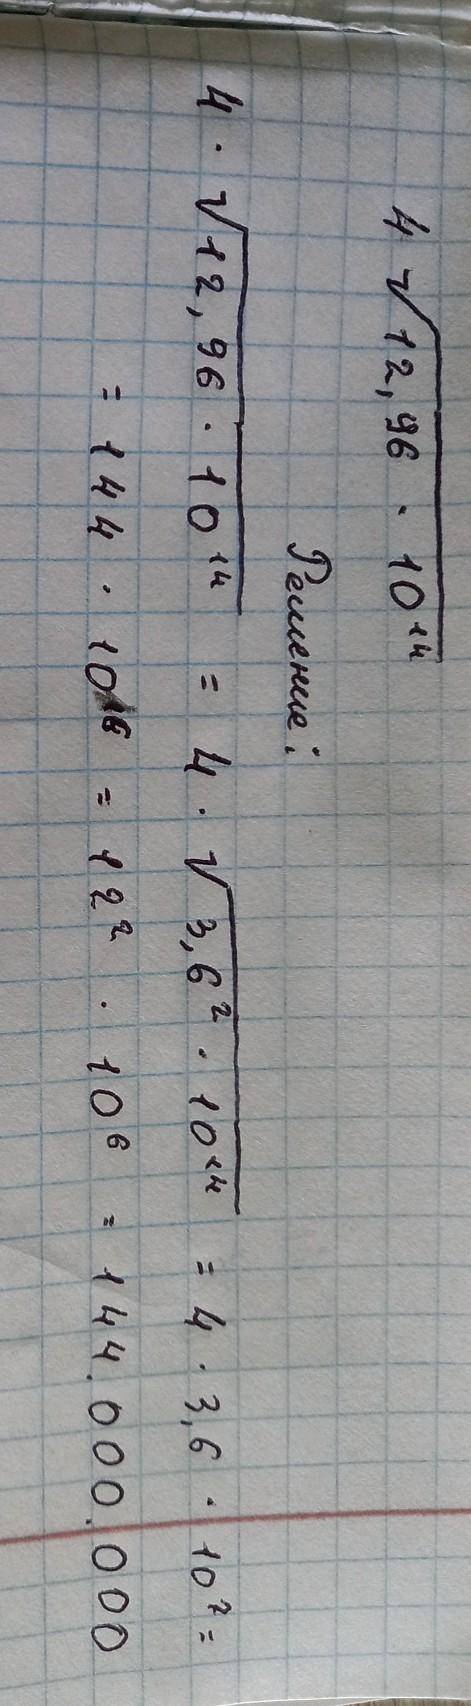 4 √12,96 · 10¹⁴
Решение:
4 · √12,96 · 10¹⁴ = 4 · √3,6² · 10¹⁴ = 4 · 3,6 · 10⁷ =
= 144 · 10⁶ = 12² · 10⁶ = 144.000.000